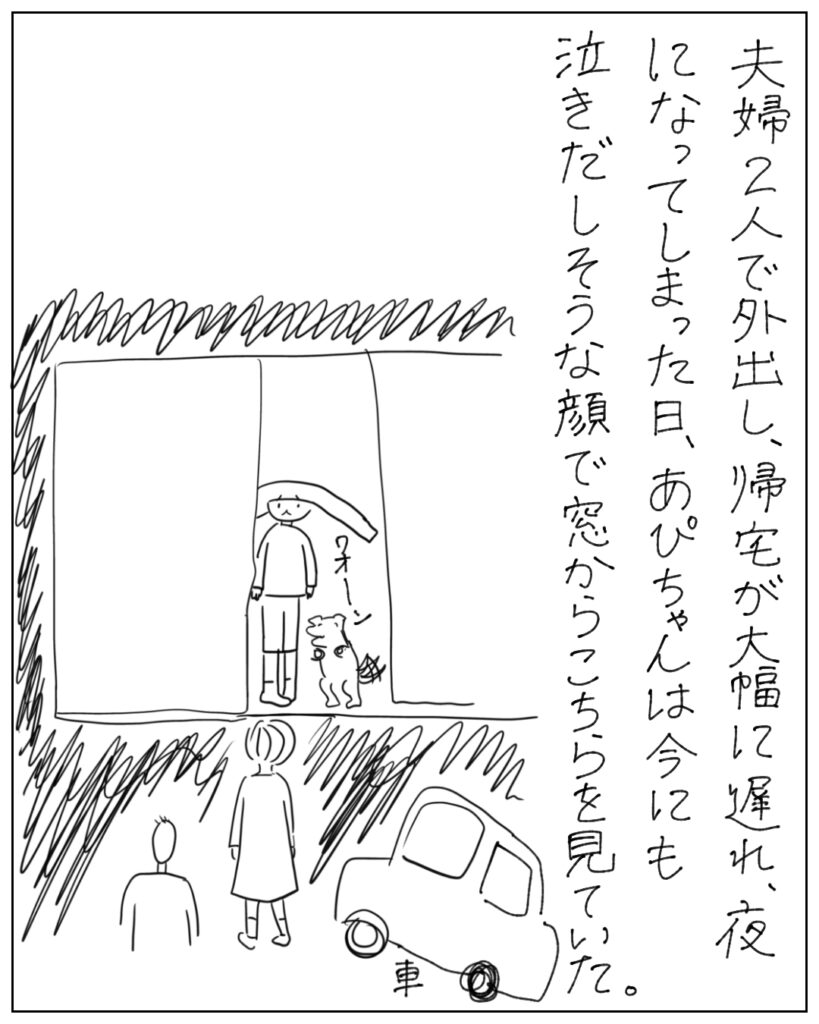 夫婦2人で外出し、帰宅が大幅に遅れ、夜
になってしまった日、あぴちゃんは今にも
泣きだしそうな顔で窓からこちらを見ていた。
ワオーン
車